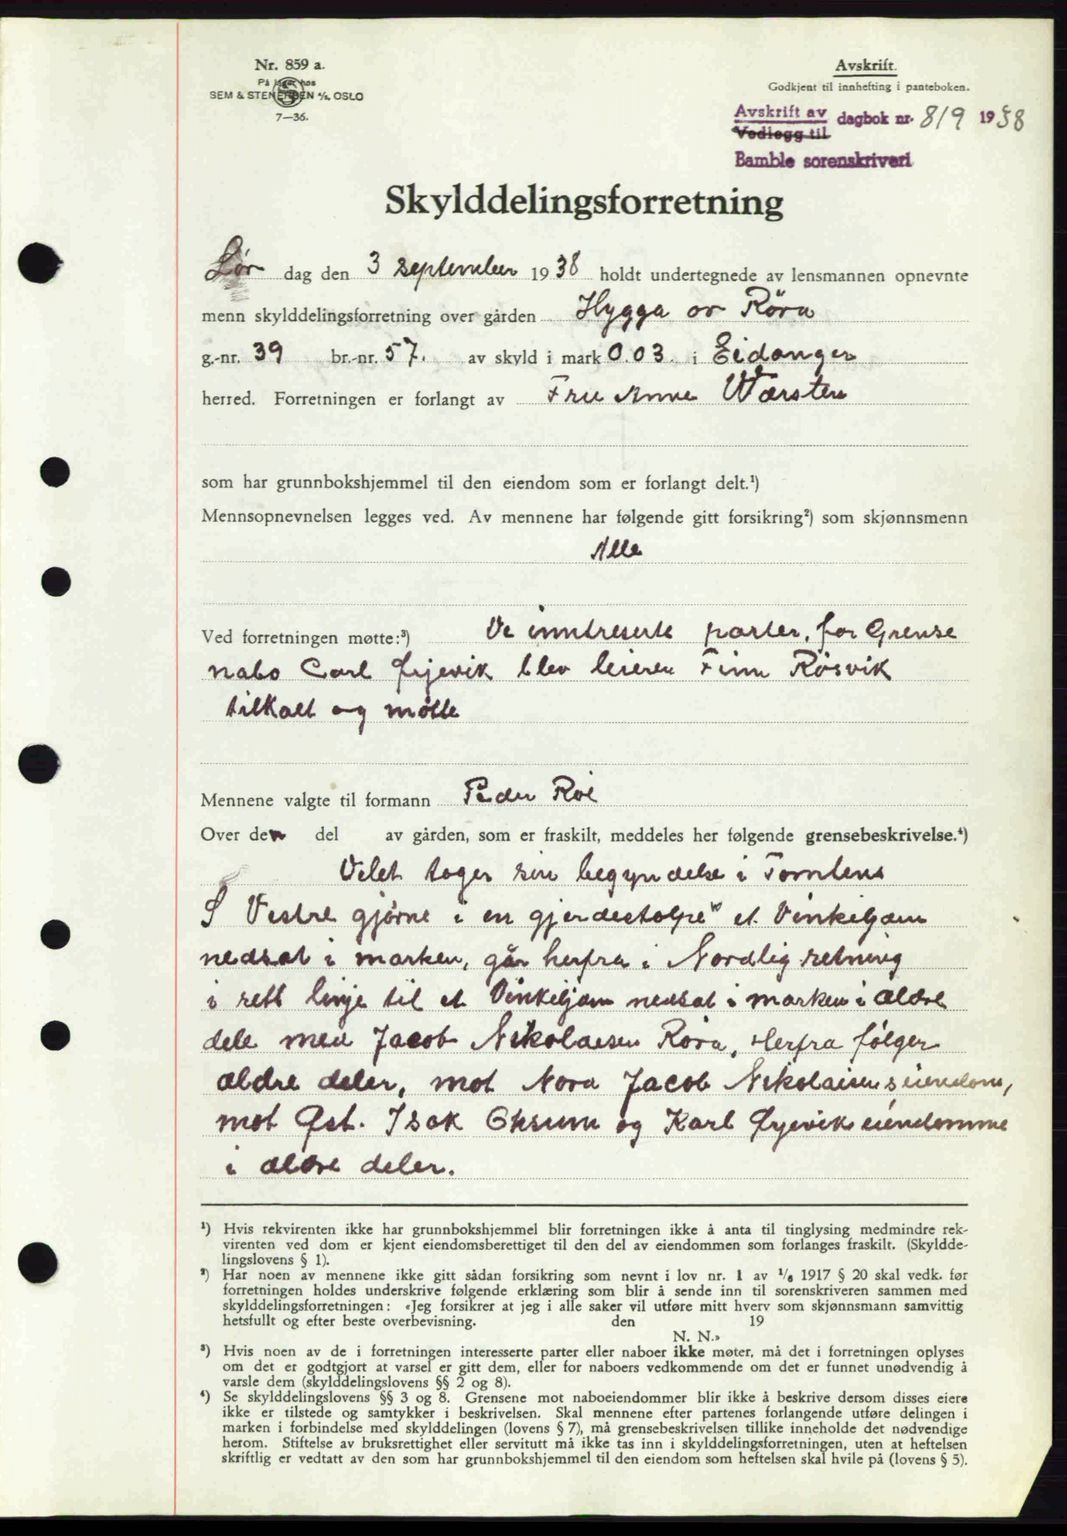 Nr. 859 a.
På lager hos
SEM & STENERSEN A/S, OSLO
7—36.
Avskrift.
Godkjent til innhefting i panteboken.
Avskrift av dagbok nr. 819 1938
Vedlegg til
Bamble sorenskriveri
Skylddelingsforretning
Lør dag den 3 september 1938 holdt undertegnede av lensmannen opnevnte
menn skylddelingsforretning over gården Hygga av Røra
g.-nr. 39 br.-nr. 57. av skyld i mark 0.03. i Eidanger
herred. Forretningen er forlangt av Fru Anne Wærsten
som har grunnbokshjemmel til den eiendom som er forlangt delt.¹)
Mennsopnevnelsen legges ved. Av mennene har følgende gitt forsikring²) som skjønnsmenn
Alle
Ved forretningen møtte:³) De inntreserte parter, for Grense
nabo Carl Øyjevik blev leieren Finn Røsvik
tilkalt og møtte
Mennene valgte til formann Peder Roe
Over den del av gården, som er fraskilt, meddeles her følgende grensebeskrivelse.⁴)
Delet tager sin begyndelse i Tomtens
S Vestre gjørne i en gjerdestolpe et Vinkeljærn
nedsat i marken, går herfra i Nordlig retning
i rett linje til et Vinkeljærn nedsat i marken i ældre
dele med Jacob Nikolaisen Røra, Herfra følger
ældre deler, mot Nord Jacob Nikolaisens eiendom,
mot Øst. Isak Ohsum og Karl Øyjeviks eiendomme
i ældre deler.
¹) Hvis rekvirenten ikke har grunnbokshjemmel blir forretningen ikke å anta til tinglysing medmindre rek-
virenten ved dom er kjent eiendomsberettiget til den del av eiendommen som forlanges fraskilt. (Skyldde-
lingslovens § 1).
²) Har noen av mennene ikke gitt sådan forsikring som nevnt i lov nr. 1 av 1/6 1917 § 20 skal vedk. før
forretningen holdes underskrive følgende erklæring som blir å sende inn til sorenskriveren sammen med
skylddelingsforretningen: «Jeg forsikrer at jeg i alle saker vil utføre mitt hverv som skjønnsmann samvittig
hetsfullt og efter beste overbevisning. den 19
N. N.»
³) Hvis noen av de i forretningen interesserte parter eller naboer ikke møter, må det i forretningen oplyses
om det er godtgjort at varsel er gitt dem, eller for naboers vedkommende om det er funnet unødvendig å
varsle dem (skylddelingslovens §§ 2 og 8).
⁴) Se skylddelingslovens §§ 3 og 8. Grensene mot naboeiendommer blir ikke å beskrive dersom disses eiere
ikke er tilstede og samtykker i beskrivelsen. Skal mennene efter partenes forlangende utføre delingen i
marken i forbindelse med skylddelingen (lovens § 7), må grensebeskrivelsen tillike inneholde det nødvendige
herom. Stiftelse av bruksrettighet eller servitutt må ikke tas inn i skylddelingsforretningen, uten at heftelsen
skriftlig er vedtatt av den som har grunnbokshjemmel til den eiendom som heftelsen skal hvile på (lovens § 5).